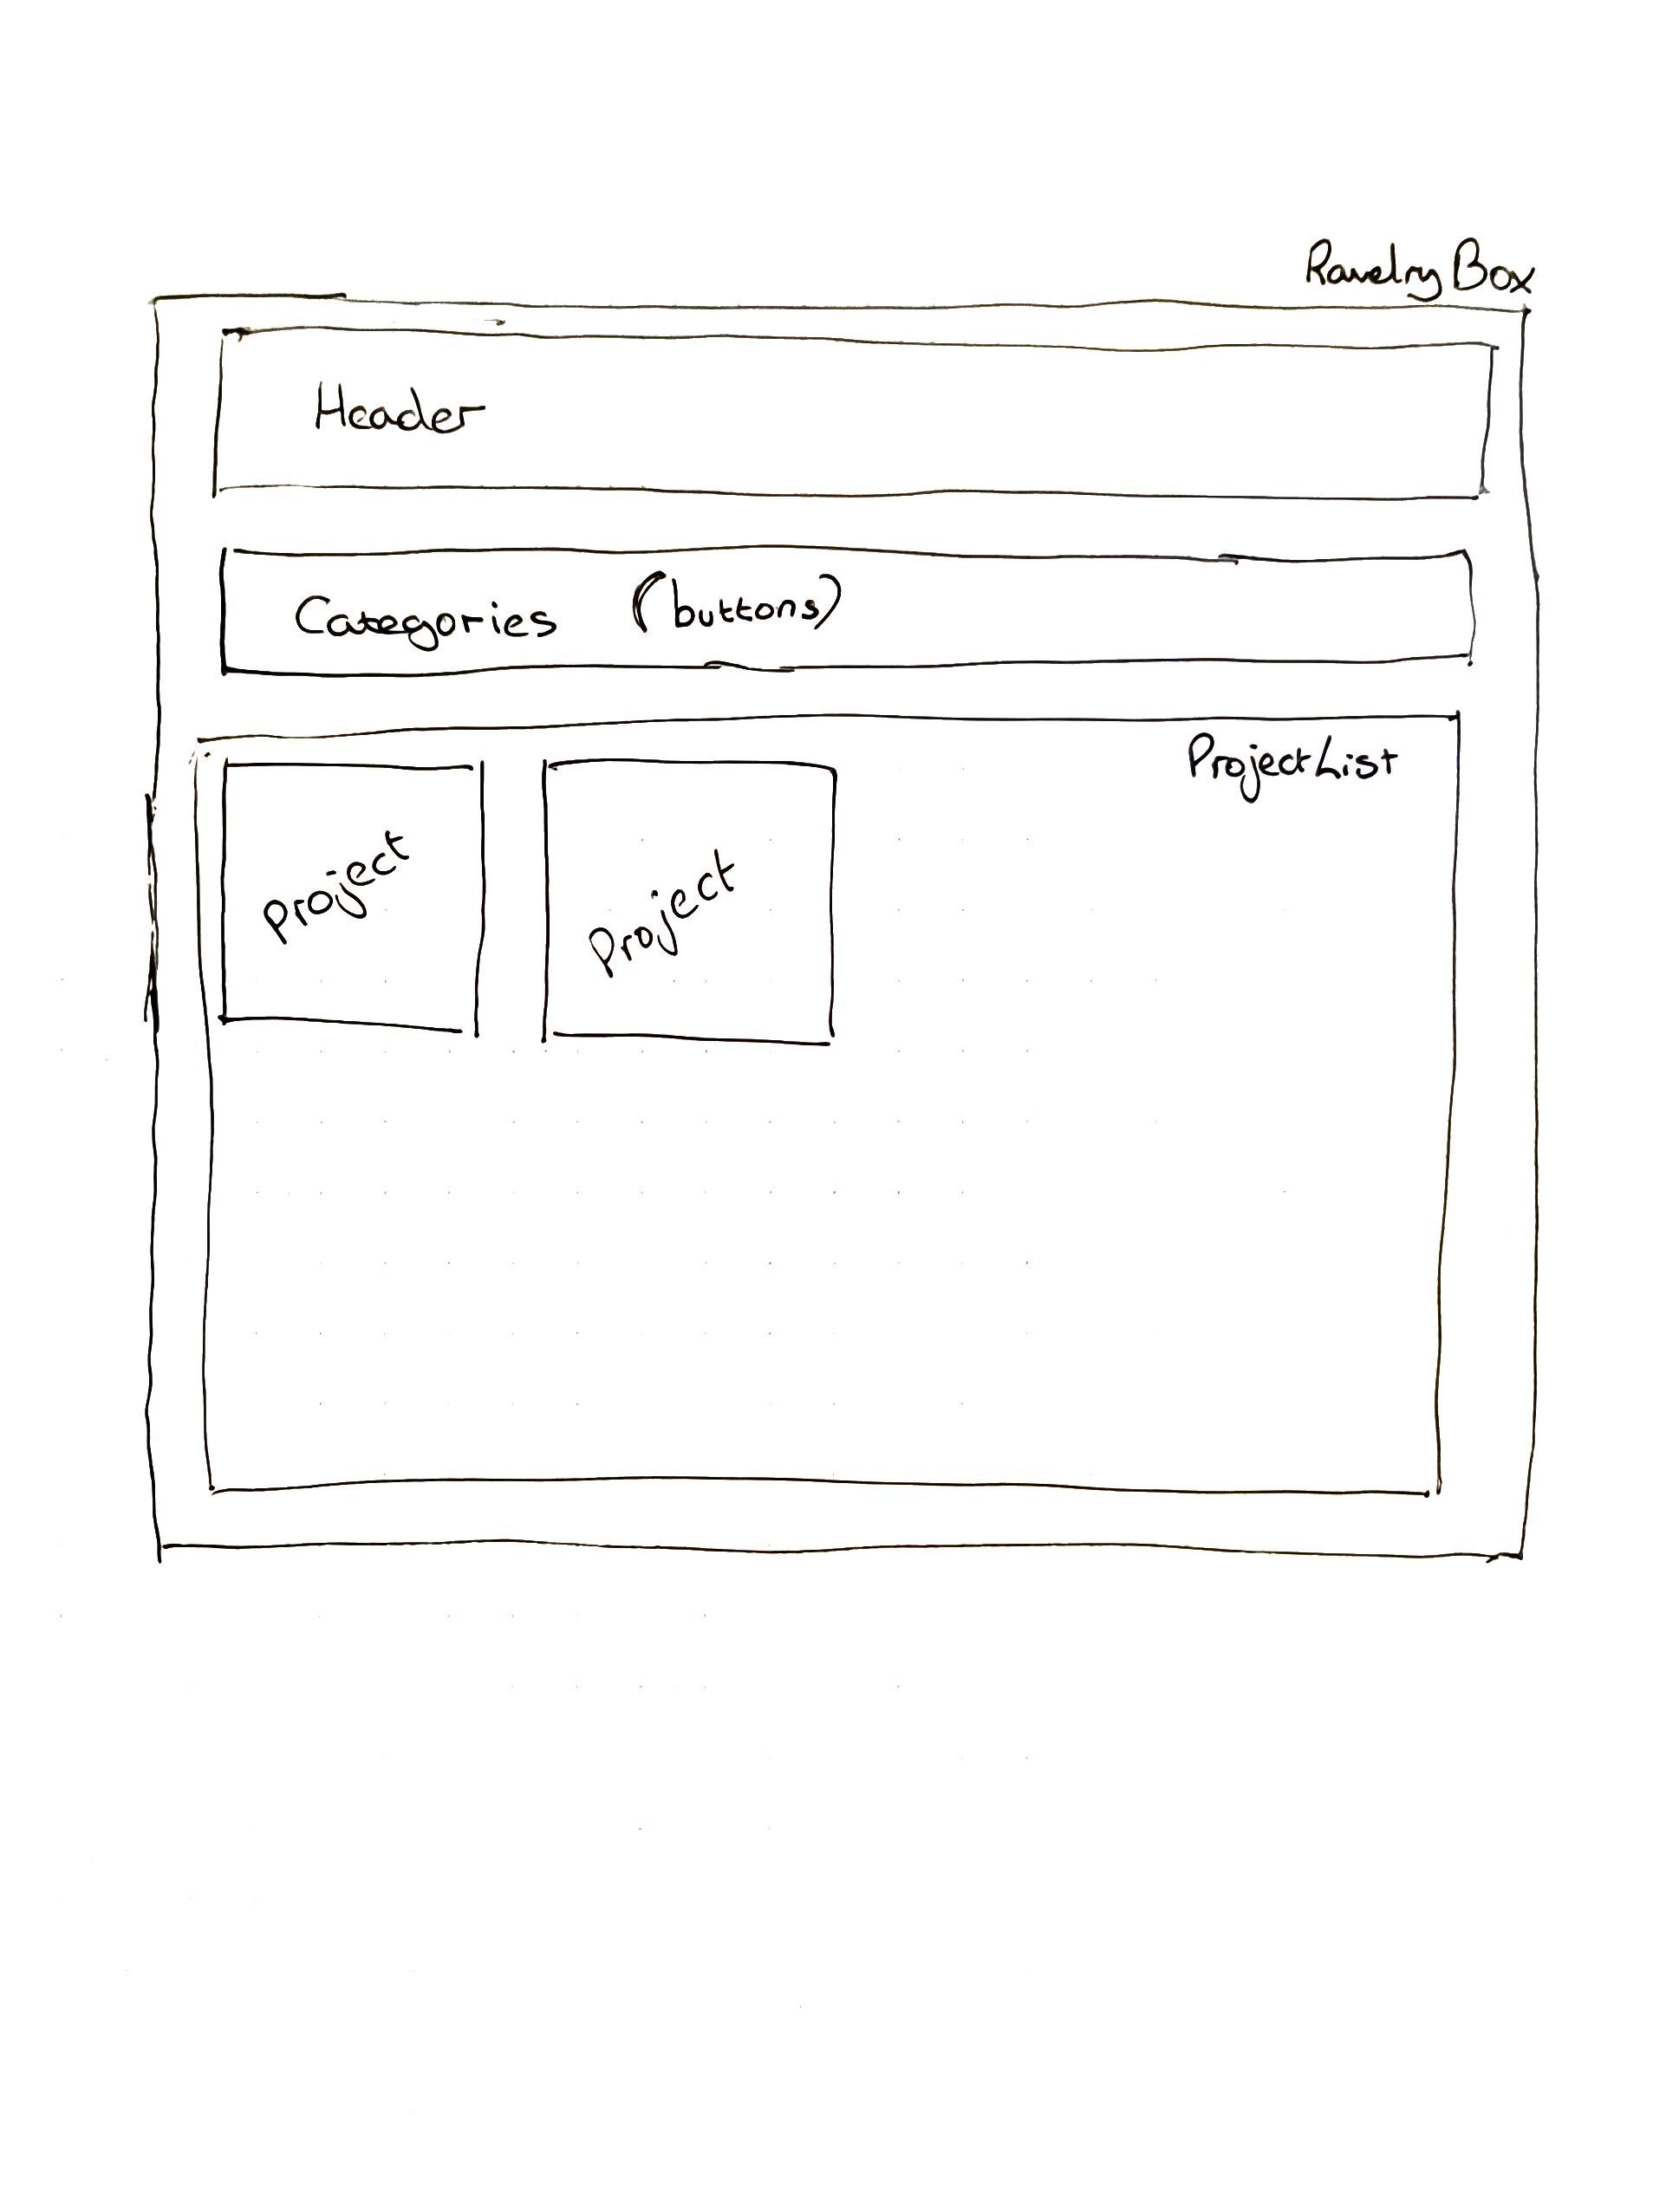 Ravelry Box
Header
Categories (buttons)
ProjectList
Project
Project